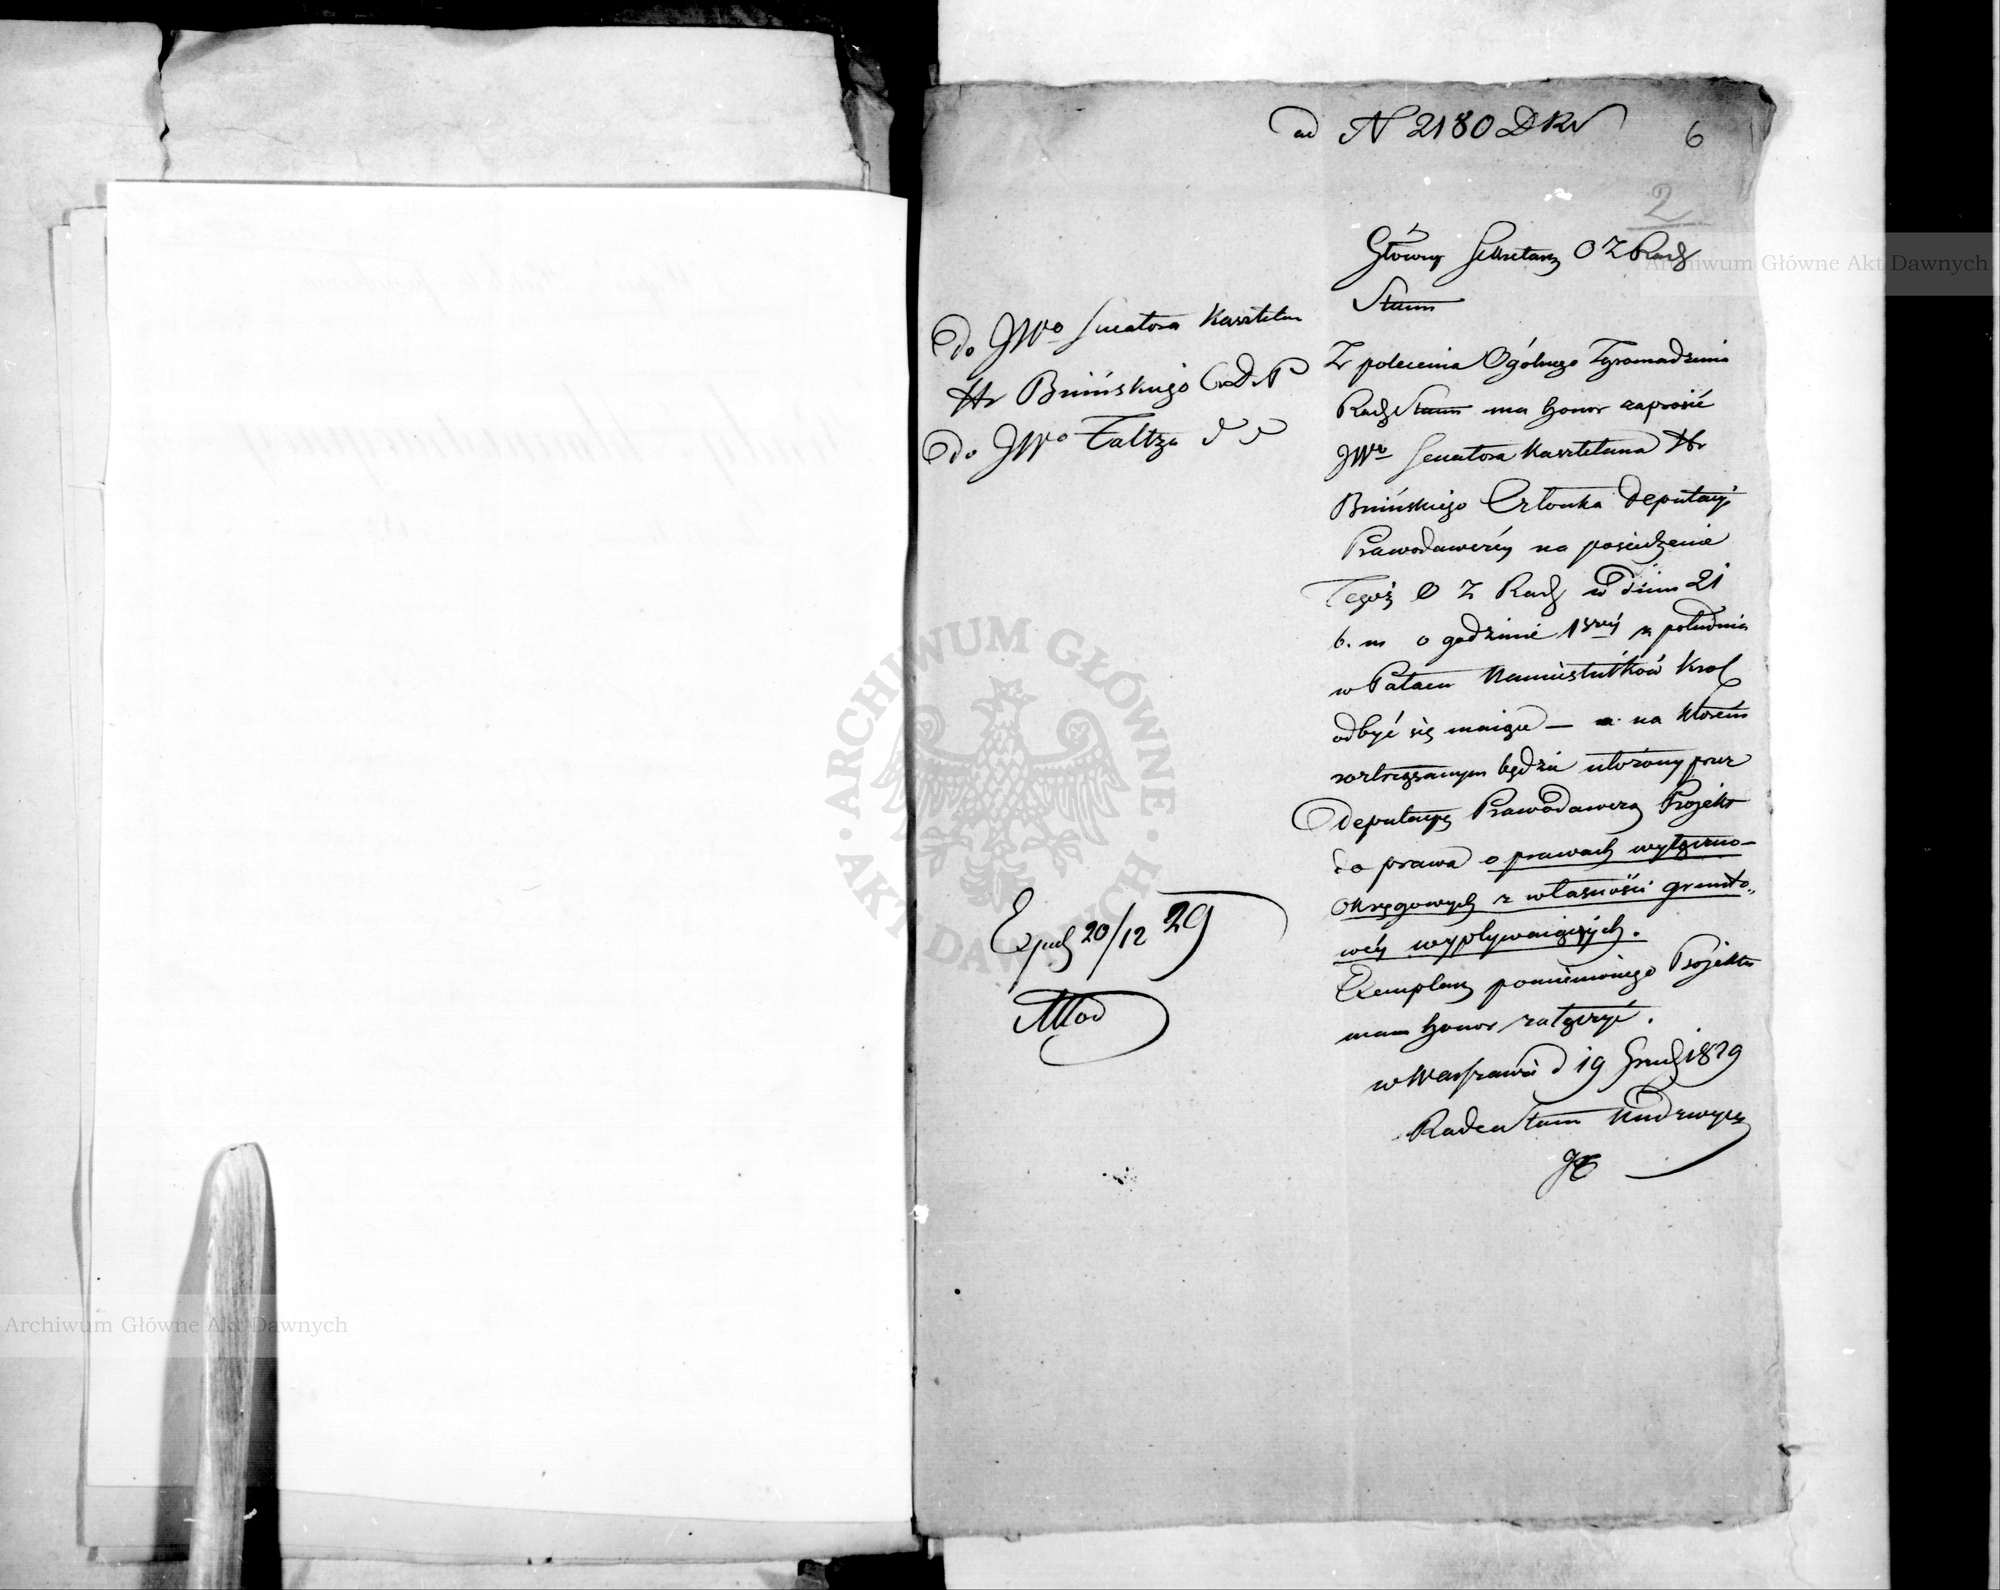 ad N 2180 DKR
6
2
Główny Sekretarz O Z Rady
Stanu
Do JWo Senatora Kasztelan
Hr Bnińskiego C. D. P
Do JWo Faltza
Z polecenia Ogólnego Zgromadzenia
Rady Stanu ma honor zaprosić
JWo Senatora Kasztelana Hr
Bnińskiego Członka Deputacyi
Prawodawczéy na posiedzenie
Tegoż O Z Rady w dniu 21
b. m o godzinie 1széy z południa
w Pałacu Namiestników Król
odbyć się maiące — a na którém
roztrząsanym będzie ułożony przez
Deputacyą Prawodawczą Projekt
do prawa o prawach wyłączno-
okręgowych z własności grunto„
wéy wypływaiących.
Exemplarz pomienionego Projektu
mam honor załączyć.
w Warszawie d 19 Grud 1829
Radca Stanu Nadzwycz
Exped 20/12 29
ARCHIWUM GŁÓWNE · AKT DAWNYCH ·
Archiwum Główne Akt Dawnych
Archiwum Główne Akt Dawnych